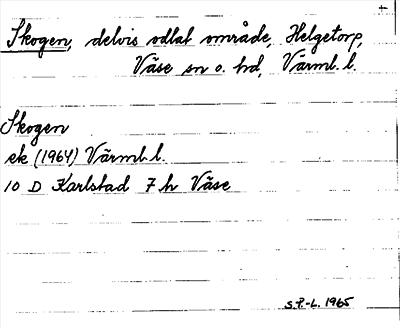 +
Skogen, delvis odlat område, Helgetorp,
Väse sn o. hd, Värml. l.
Skogen
ek (1964) Värml. l.
10 D Karlstad 7 h Väse
S.P.-L. 1965